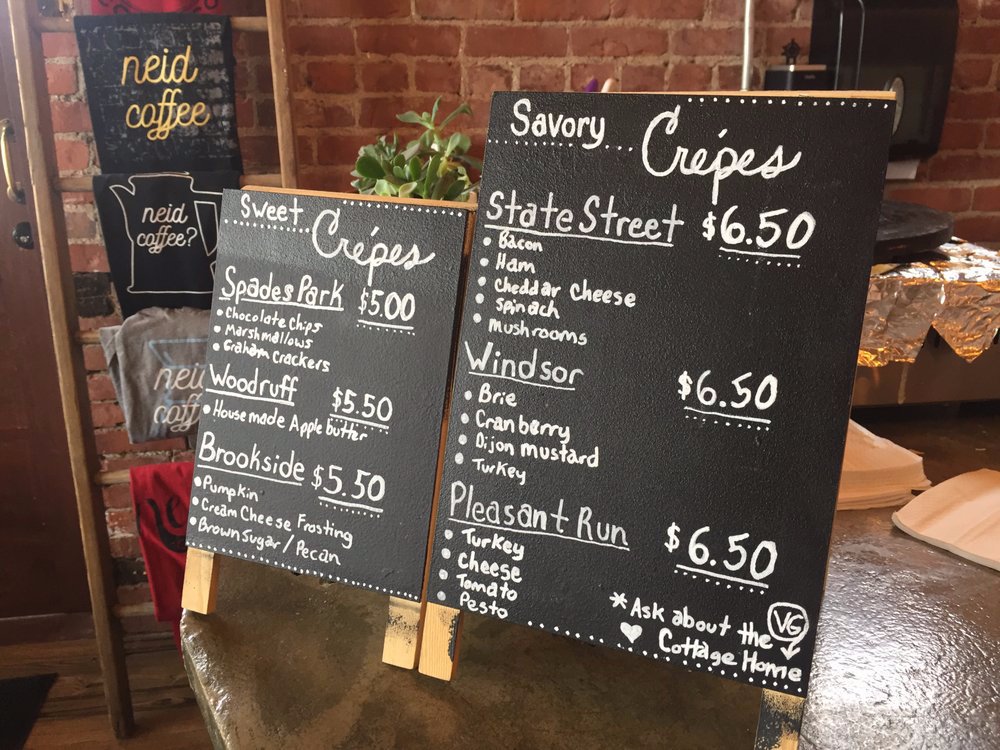 neid
coffee
neid
coffee?
neid
coffee
Sweet
Crépes
Spades Park $5.00
• Chocolate Chips
• Marshmallows
• Graham Crackers
Woodruff $5.50
• House made Apple butter
Brookside $5.50
• Pumpkin
• Cream Cheese Frosting
• Brown Sugar / Pecan
Savory... Crépes
State Street $6.50
• Bacon
• Ham
• Cheddar Cheese
• Spinach
• mushrooms
Windsor $6.50
• Brie
• Cranberry
• Dijon mustard
• Turkey
Pleasant Run $6.50
• Turkey
• Cheese
• Tomato
• Pesto
* Ask about the VG
Cottage Home